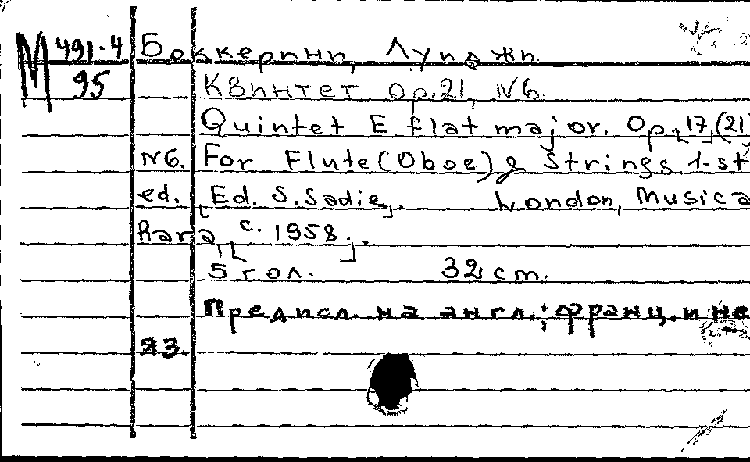 М 491-4 Боккерини, Луиджи
95 Квинтет Op.21, N6.
Quintet E flat major. Op.[17](21)
N6. For Flute(Oboe) & Strings 1-st
ed. [Ed. S.Sadie]. London, Musica
Rara, [c. 1958.].
5 гол. 32 cm.
Предисл. на англ.; франц. и не
яз.